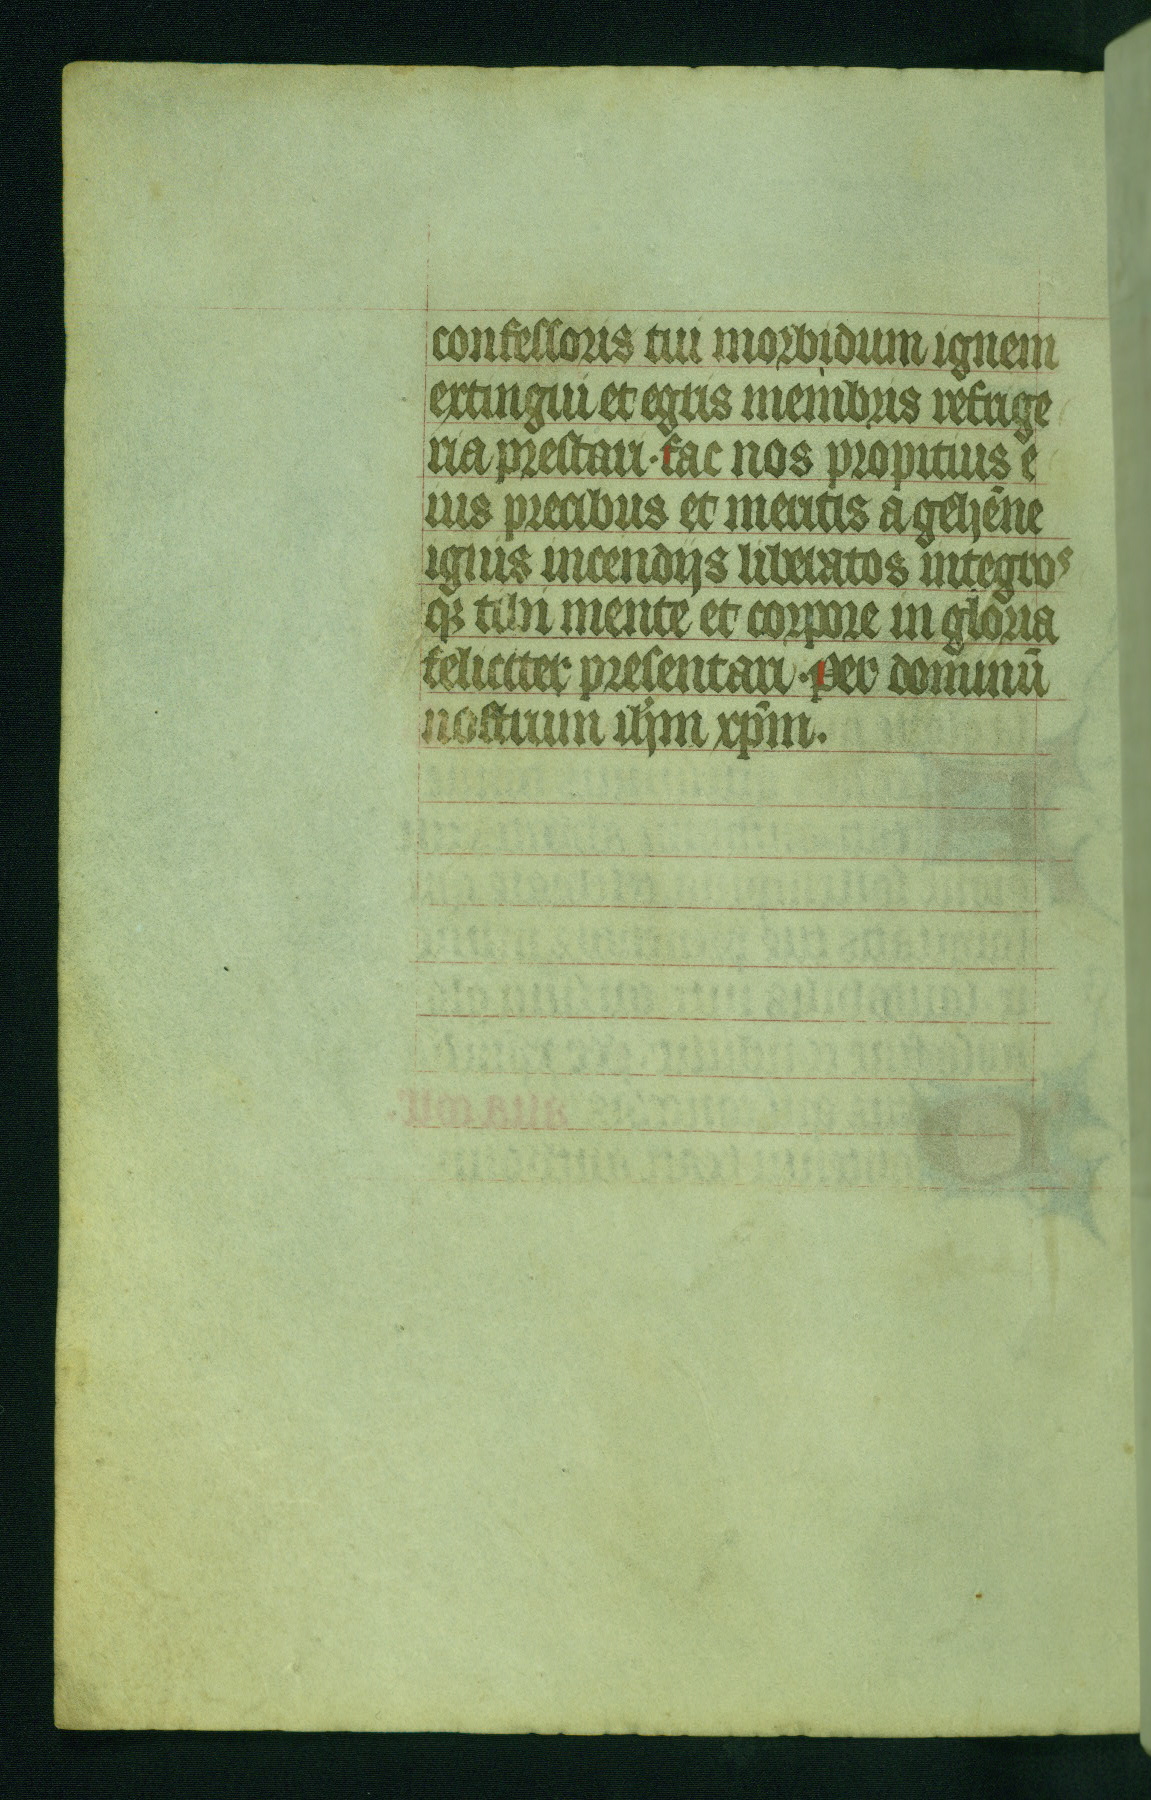 confessoris tui morbidum ignem
extingui et egris membris refrige
ria prestari · fac nos propitius e
ius precibus et meritis a gehēne
ignis incendijs liberatos integros
qꝫ tibi mente et corpore in gloria
feliciter presentari · per dominū
nostrum ihm̄ xpm̄.